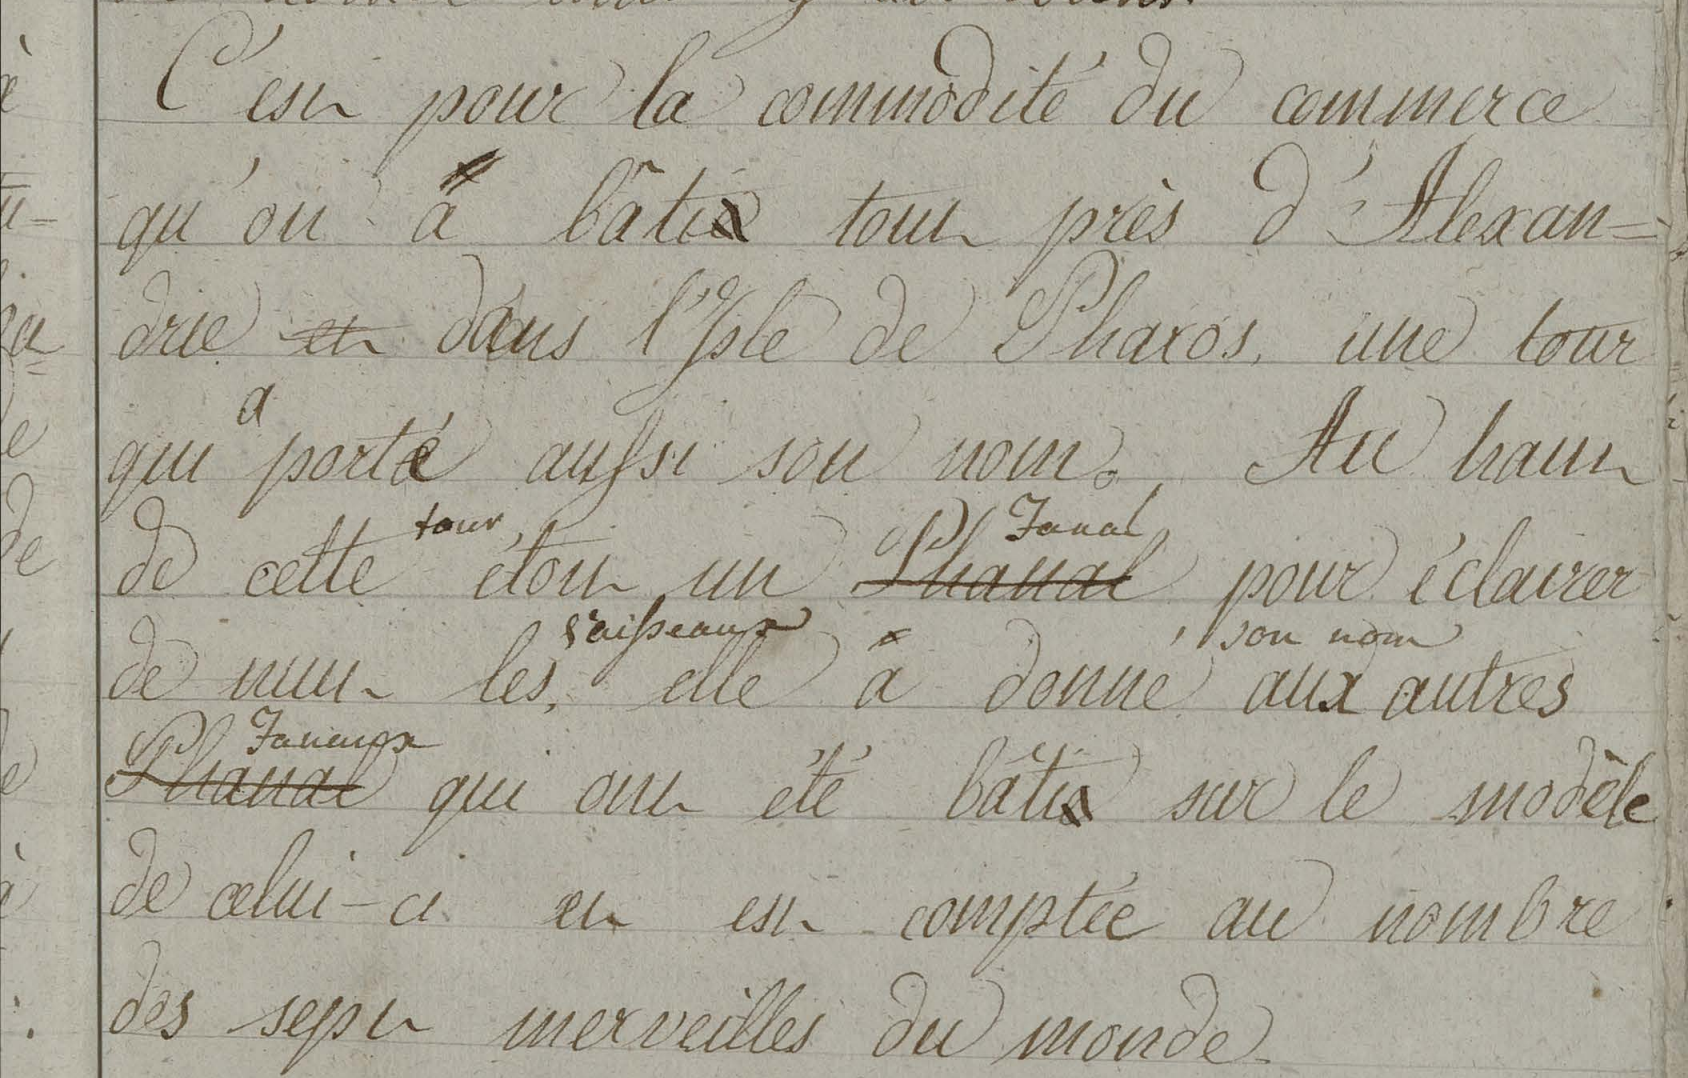 C'est pour la commodité du commerce
qu'on a bâti tout près d'Alexan=
drie et dans l'Isle de Pharos, une tour
qui a porté aussi son nom. Au haut
de cette tour étoit un Phanal Fanal pour éclairer
de nuit les vaisseaux, elle a donné son nom aux autres
Phanal Fanaux qui ont été bâtis sur le modèle
de celui-ci et est comptée au nombre
des sept merveilles du monde.